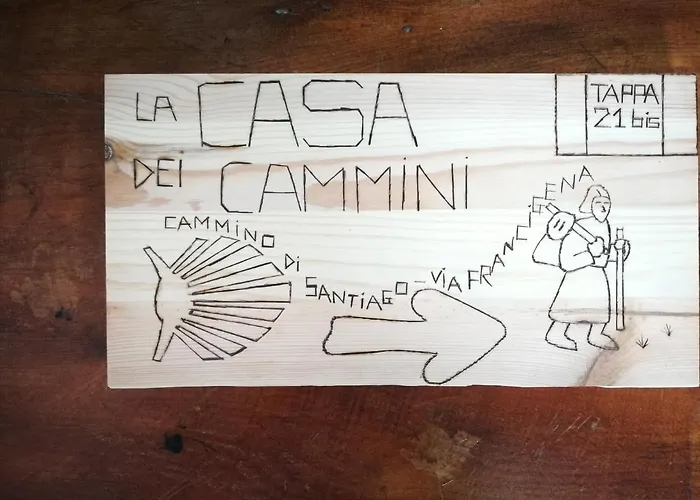 LA CASA
DEI CAMMiNi
TAPPA
21 bis
CAMMiNO Di SANTiAGO - ViA FRANCiGENA